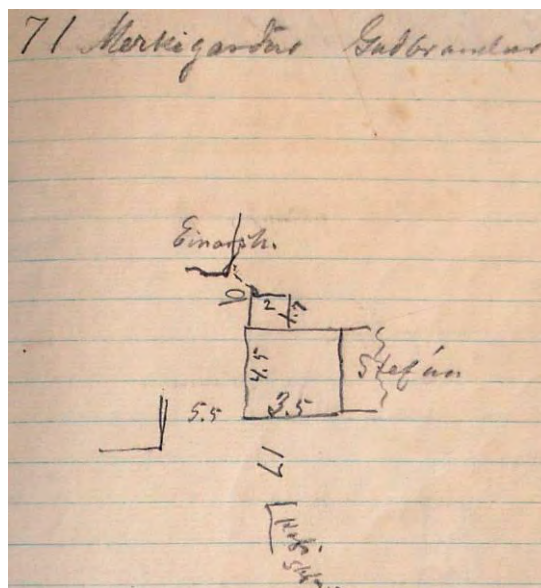 71 Merkigarður Guðbrandur
Einarsh.
10
2
1.7
4.5
Stefán
5.5
3.5
17